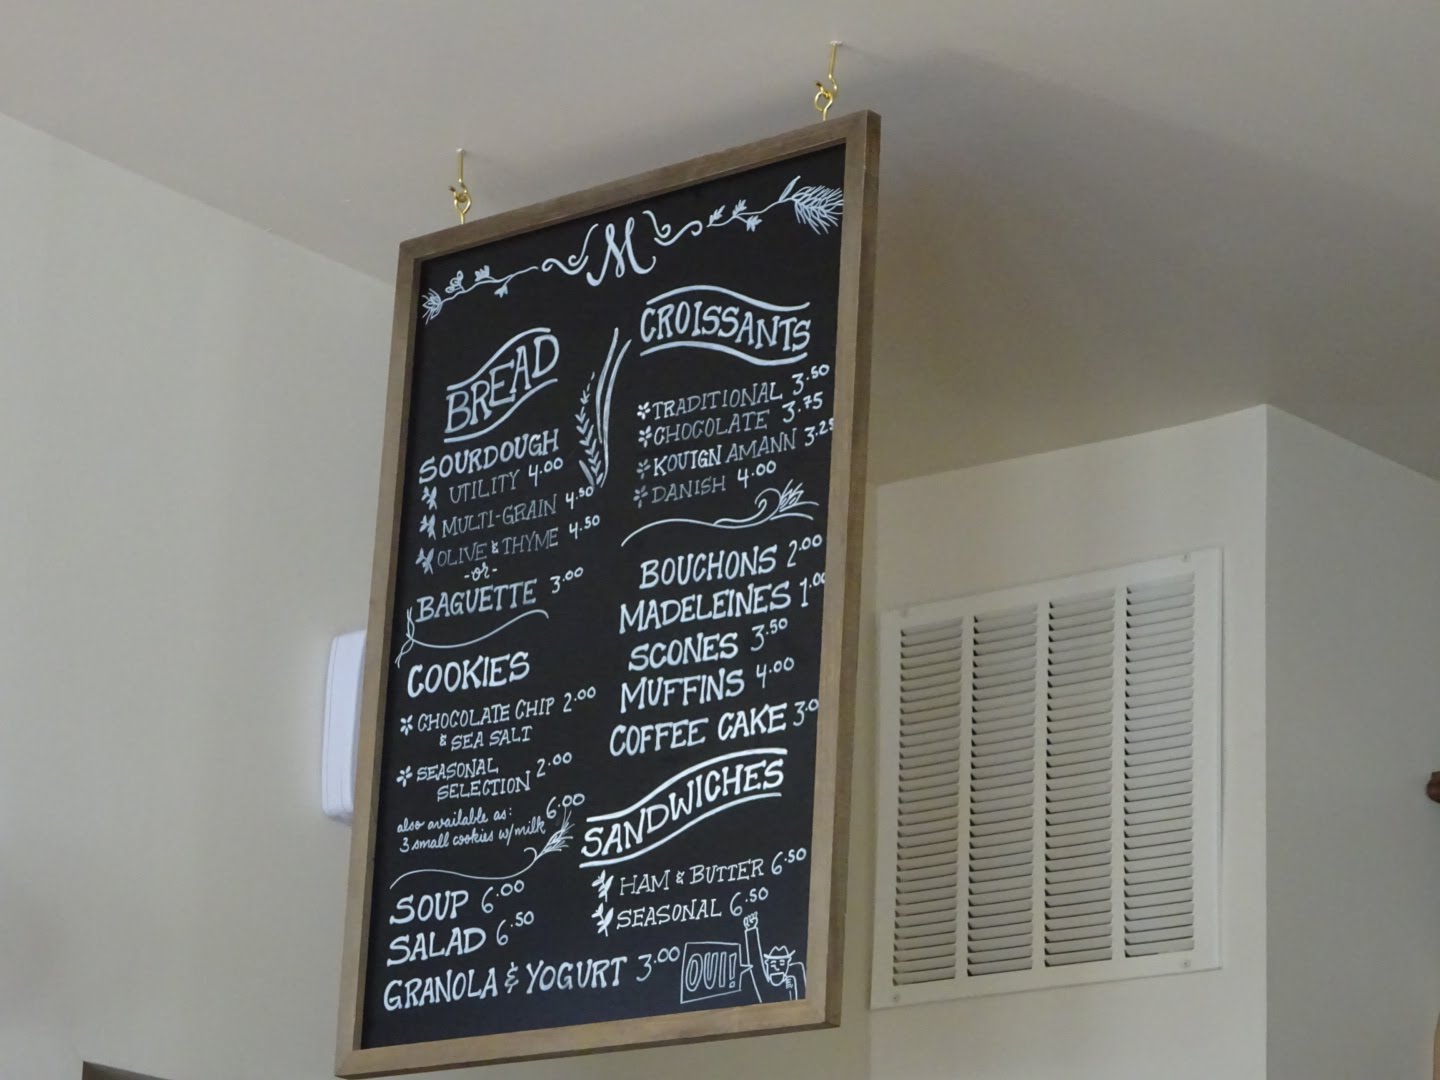 M
BREAD
SOURDOUGH
UTILITY 4.00
MULTI-GRAIN 4.50
OLIVE & THYME 4.50
-or-
BAGUETTE 3.00
COOKIES
CHOCOLATE CHIP 2.00
& SEA SALT
SEASONAL
SELECTION 2.00
also available as: 6.00
3 small cookies w/milk
SOUP 6.00
SALAD 6.50
GRANOLA & YOGURT 3.00
CROISSANTS
TRADITIONAL 3.50
CHOCOLATE 3.75
KOUIGN AMANN 3.25
DANISH 4.00
BOUCHONS 2.00
MADELEINES 1.00
SCONES 3.50
MUFFINS 4.00
COFFEE CAKE 3.0
SANDWICHES
HAM & BUTTER 6.50
SEASONAL 6.50
OUI!